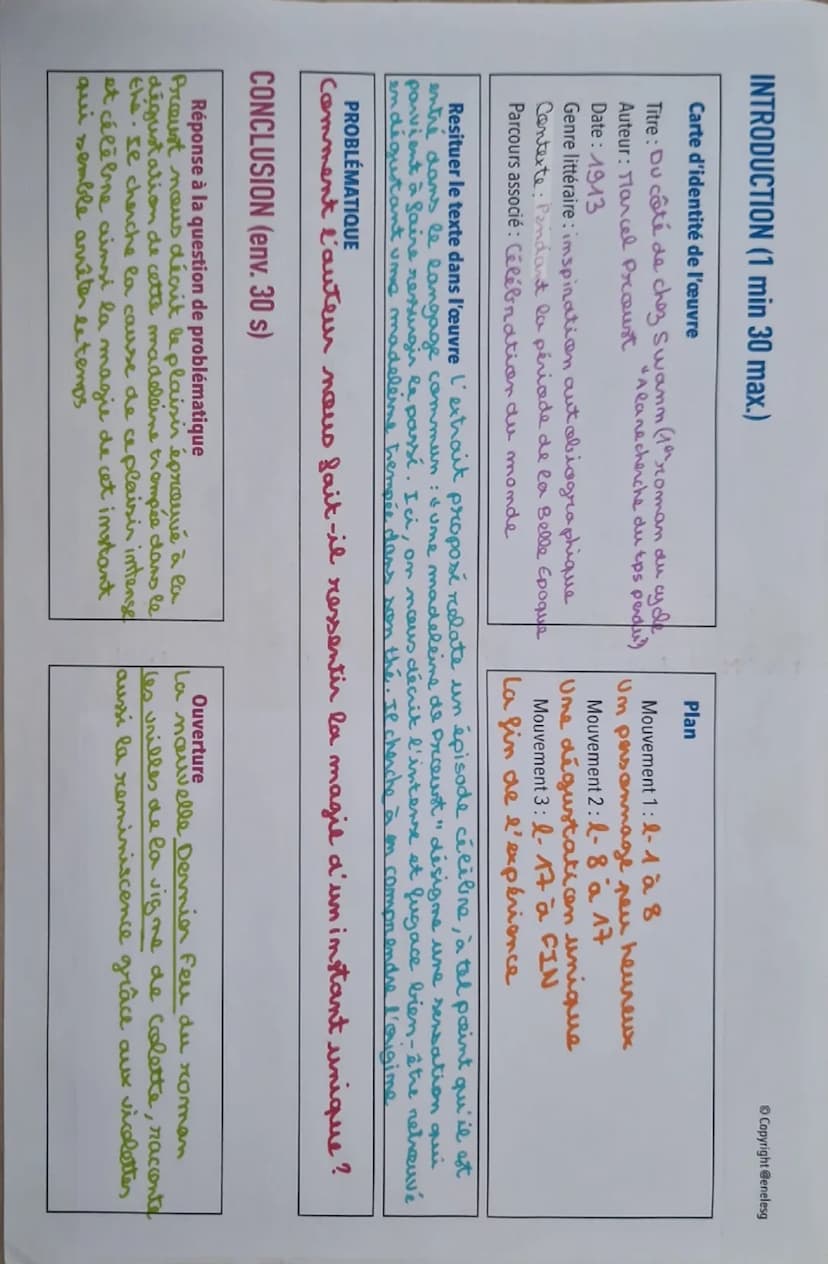 © Copyright @enelesg
INTRODUCTION (1 min 30 max.)
Carte d'identité de l'œuvre
Titre : Du côté de chez Swann (1er roman du cycle
"A la recherche du tps perdu")
Auteur : Marcel Proust
Date : 1913
Genre littéraire : inspiration autobiographique
Contexte : Pendant la période de la Belle Epoque
Parcours associé : Célébration du monde
Plan
Mouvement 1 : l. 1 à 8
Un personnage peu heureux
Mouvement 2 : l. 8 à 17
Une dégustation unique
Mouvement 3 : l. 17 à FIN
La fin de l'expérience
Resituer le texte dans l'œuvre L'extrait proposé relate un épisode célèbre, à tel point qu'il est
entré dans le langage commun : "une madeleine de Proust" désigne une sensation qui
parvient à faire ressurgir le passé. Ici, on nous décrit l'intense et fugace bien-être retrouvé
en dégustant une madeleine trempée dans son thé. Il cherche à en comprendre l'origine
PROBLÉMATIQUE
Comment l'auteur nous fait-il ressentir la magie d'un instant unique ?
CONCLUSION (env. 30 s)
Réponse à la question de problématique
Proust nous décrit le plaisir éprouvé à la
dégustation de cette madeleine trempée dans le
thé. Il cherche la cause de ce plaisir intense
et célèbre ainsi la magie de cet instant
qui semble arrêter le temps
Ouverture
La nouvelle Dernier Feu du roman
les vrilles de la vigne de Colette, raconte
aussi la reminiscence grâce aux violettes